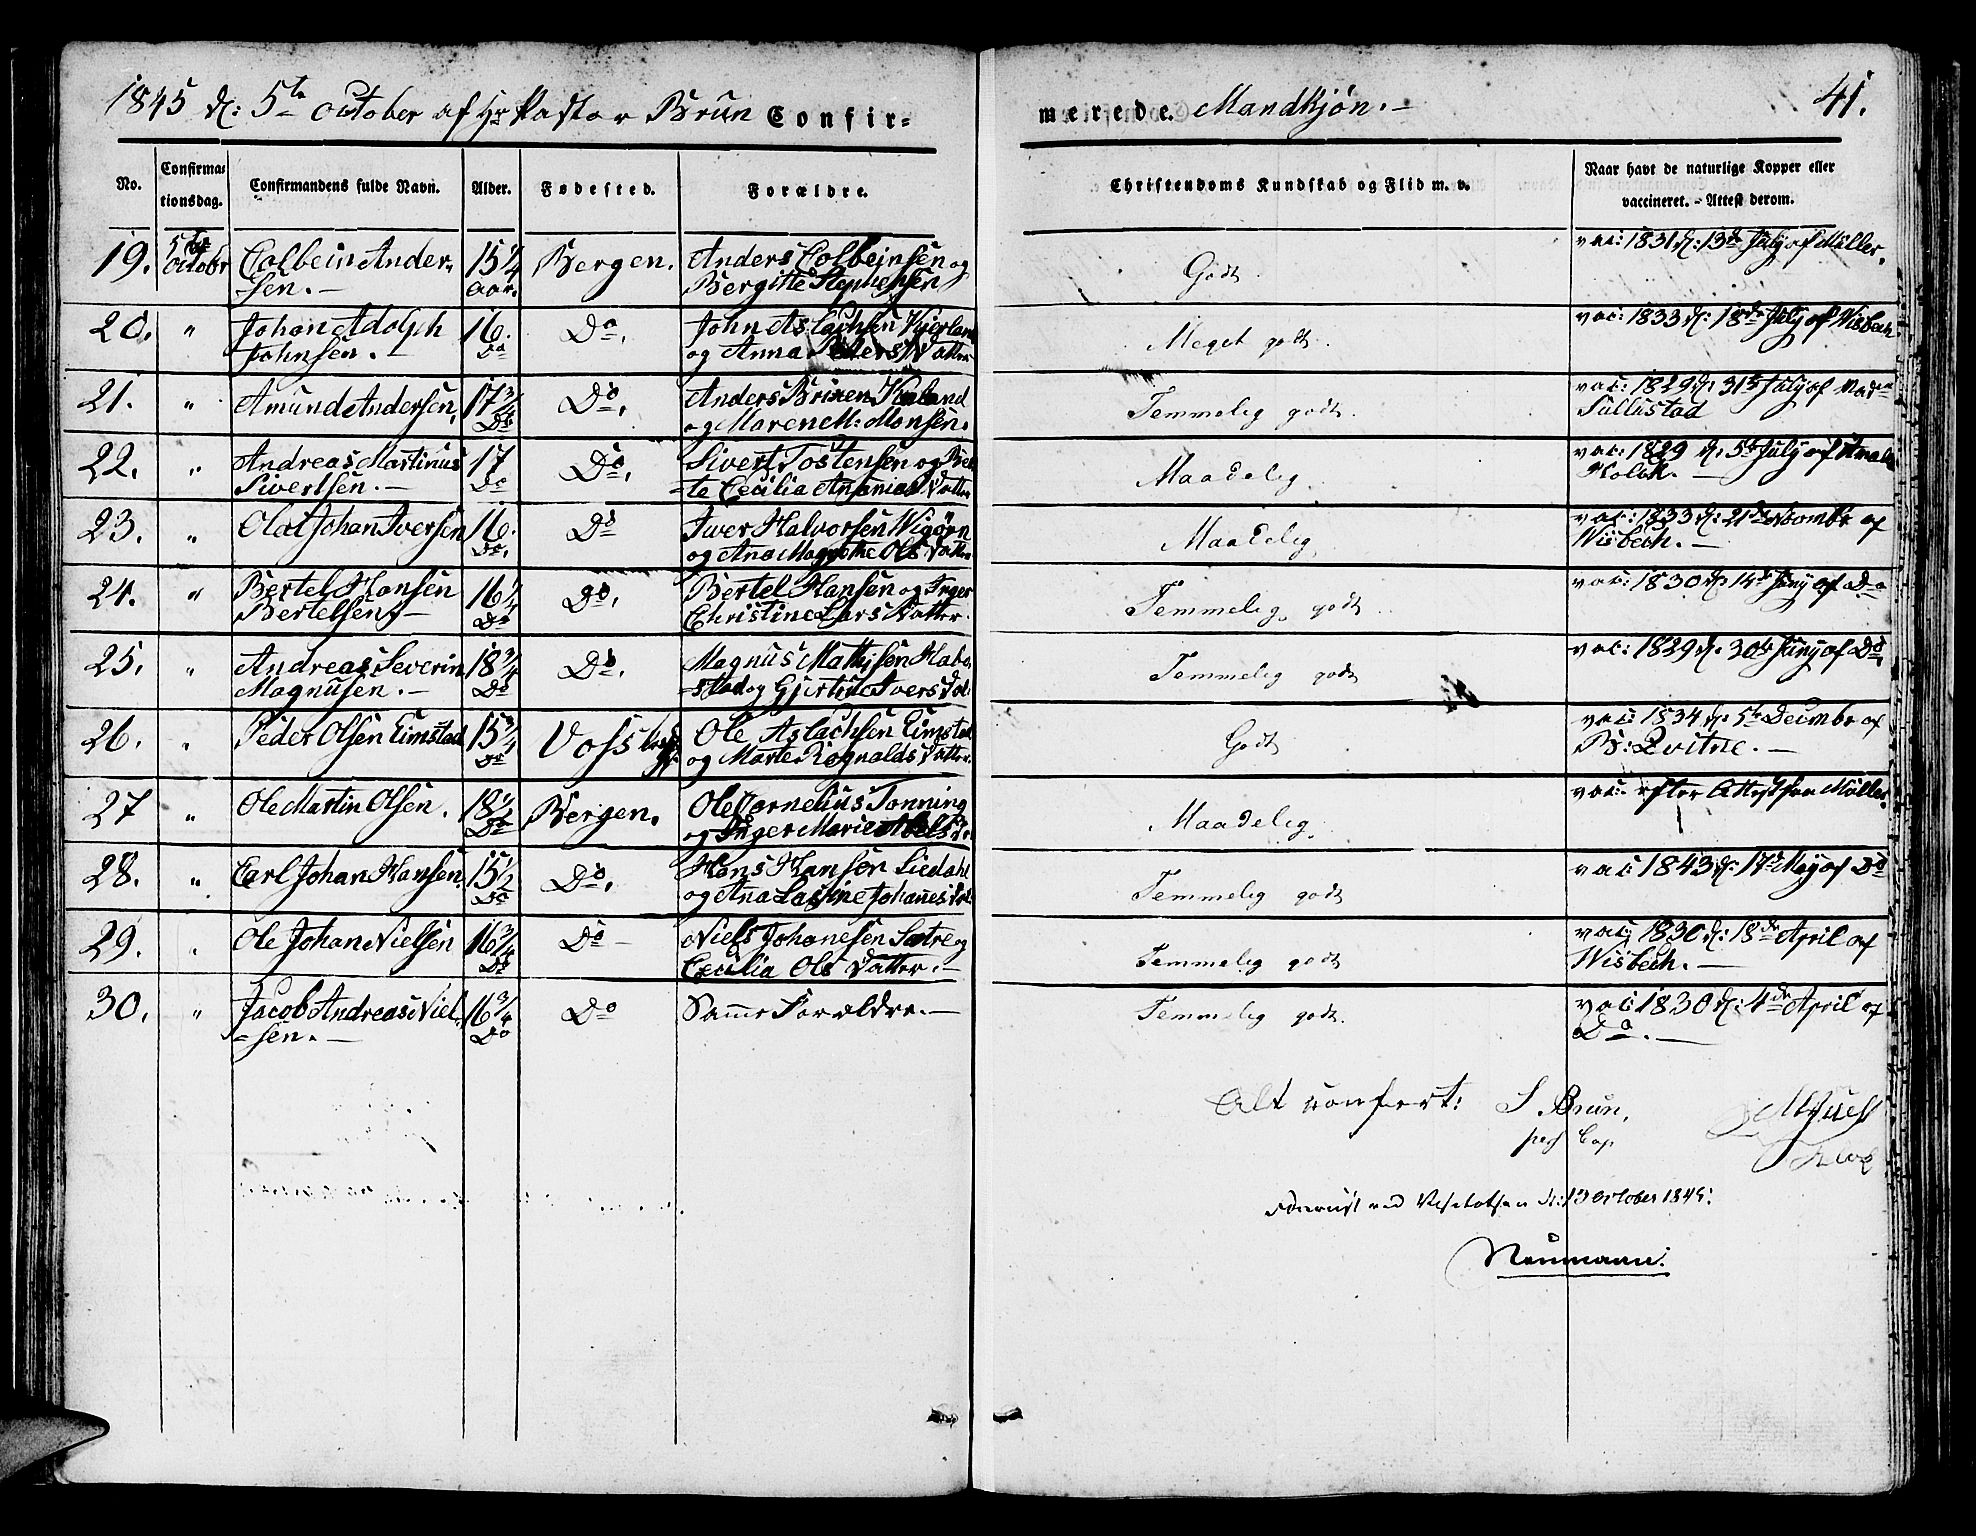 1845 d: 5te October af Hr Pastor Brun Confir-
merede. Mandkjøn. —
41.
No.
Confirma-
tionsdag.
Confirmandens fulde Navn.
Alder.
Fødested.
Forældre.
Christendoms Kundskab og Flid m. v.
Naar havt de naturlige Kopper eller
vaccineret. - Attest derom.
19. 5te Octobr Colbein Ander- 15 1/4 Bergen. Anders Colbeinsen og Godt vac: 1831 d: 13de July af Müller.
sen. — aar. Bergitte Stephensen
20. " Johan Adolph 16. Do. John Aslachsen Meget godt. vac: 1833 d: 18de July af Wisbech.
Johnsen. — Do og Anna Datter
21. " Amund Andersen, 17 3/4 Do. Anders Temmelig godt. vac: 1829 d: 31te July af
Do og Maren M: Monsen.
22. " Andreas Martinus 17 Do. Sivert Tostensen og Maadelig vac: 1829 d: 5te July af
Sivertsen. — Do -te Cecilia Datter Holck. —
23. " Olai Johan Iversen 16. Do Iver Halvorsen Maadelig vac: 1833 d: 21de Novembr af
Do. og Ana Ols Datter Wisbech. —
24. " Bertel Hansen 16 1/4 Do. Bertel Hansen og Inger Temmelig godt vac: 1830 d: 14de Juny af Do
Bertelsen. — Do Christine Lars Datter.
25. " Andreas Severin 18 3/4 Do. Magnus Mathisen Temmelig godt vac: 1829 d: 30te Juny af Do.
Magnusen. — Do -stad og Gjertine Ivers Dat:
26. " Peder Olsen Eimstad 15 3/4 Voss Ole Aslachsen Eimstad Godt vac: 1834 d: 5te Decembr af
Do og Marte Rognalds Datter. B: Qvitne. —
27 " Ole Martin Olsen. 18 1/2 Bergen. Ole Cornelius Tonning Maadelig. vac: efter Attest fra Müller.
Do og Inger Marie
28. " Carl Johan Hansen. 15 1/2 Do. Hans Hansen Liedahl Temmelig godt vac: 1843 d: 17de May af Do
Do og Ana Johannes Dat:
29. " Ole Johan Nielsen 16 3/4 Do — Niels Johanesen Sætre og Temmelig godt vac: 1830 d: 18de April af
Do Cecilia Ols Datter. — Wisbech. —
30. " Jacob Andreas Niel- 16 3/4 Do Samme Forældre. — Temmelig godt. vac: 1830 d: 4de April af
-sen. — Do Do. —
Alt confert: S. Brun,
pers Cap
d: 13 October 1845:
Neumann.